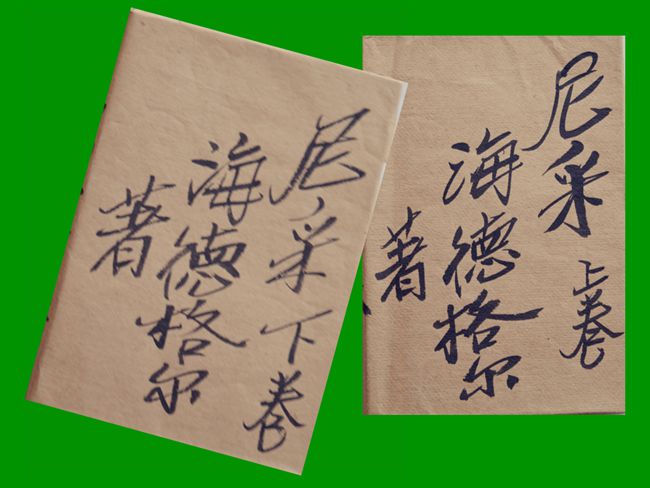 尼采下卷
海德格尔
著
尼采上卷
海德格尔
著